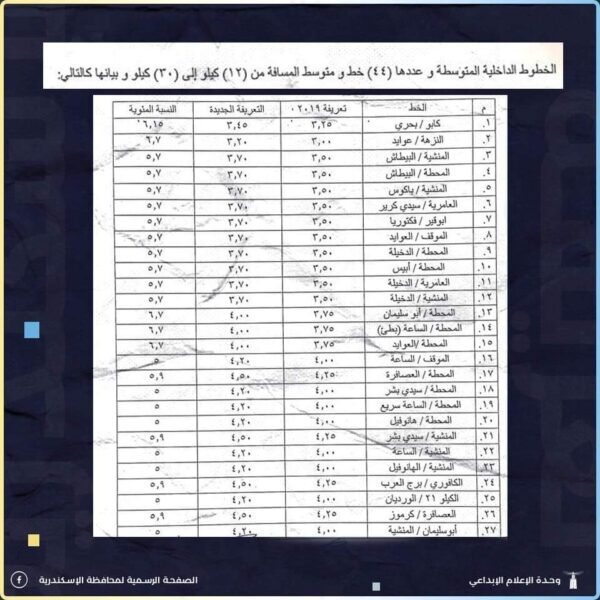 الخطوط الداخلية المتوسطة و عددها (٤٤) خط و متوسط المسافة من (١٢) كيلو إلى (٣٠) كيلو و بيانها كالتالي:
م الخط تعريفة ٢٠١٩ التعريفة الجديدة النسبة المئوية
١. كابو / بحري ٣,٢٥ ٣,٤٥ ٦,١٥
٢. النزهة / عوايد ٣,٠٠ ٣,٢٠ ٦,٧
٣. المنشية / البيطاش ٣,٥٠ ٣,٧٠ ٥,٧
٤. المحطة / البيطاش ٣,٥٠ ٣,٧٠ ٥,٧
٥. المنشية / باكوس ٣,٥٠ ٣,٧٠ ٥,٧
٦. العامرية / سيدي كرير ٣,٥٠ ٣,٧٠ ٥,٧
٧. ابوقير / فكتوريا ٣,٥٠ ٣,٧٠ ٥,٧
٨. الموقف / العوايد ٣,٥٠ ٣,٧٠ ٥,٧
٩. المحطة / الدخيلة ٣,٥٠ ٣,٧٠ ٥,٧
١٠. المحطة / أبيس ٣,٥٠ ٣,٧٠ ٥,٧
١١. العامرية / الدخيلة ٣,٥٠ ٣,٧٠ ٥,٧
١٢. المنشية / الدخيلة ٣,٥٠ ٣,٧٠ ٥,٧
١٣. المحطة / أبو سليمان ٣,٧٥ ٤,٠٠ ٦,٧
١٤. المحطة / الساعة (بطئ) ٣,٧٥ ٤,٠٠ ٦,٧
١٥. المحطة /العوايد ٣,٧٥ ٤,٠٠ ٦,٧
١٦. الموقف / الساعة ٤,٠٠ ٤,٢٠ ٥
١٧. المحطة / العصافرة ٤,٢٥ ٤,٥٠ ٥,٩
١٨. المحطة / سيدي بشر ٤,٠٠ ٤,٢٠ ٥
١٩. المحطة / الساعة سريع ٤,٠٠ ٤,٢٠ ٥
٢٠. المحطة / هانوفيل ٤,٠٠ ٤,٢٠ ٥
٢١. المنشية / سيدي بشر ٤,٢٥ ٤,٥٠ ٥,٩
٢٢. المنشية / الساعة ٤,٠٠ ٤,٢٠ ٥
٢٣. المنشية / الهانوفيل ٤,٠٠ ٤,٢٠ ٥
٢٤. الكافوري / برج العرب ٤,٢٥ ٤,٥٠ ٥,٩
٢٥. الكيلو ٢١ / الورديان ٤,٠٠ ٤,٢٠ ٥
٢٦. العصافرة / كرموز ٤,٢٥ ٤,٥٠ ٥,٩
٢٧. أبوسليمان / المنشية ٤,٠٠ ٤,٢٠ ٥
وحدة الإعلام الإبداعي
الصفحة الرسمية لمحافظة الإسكندرية